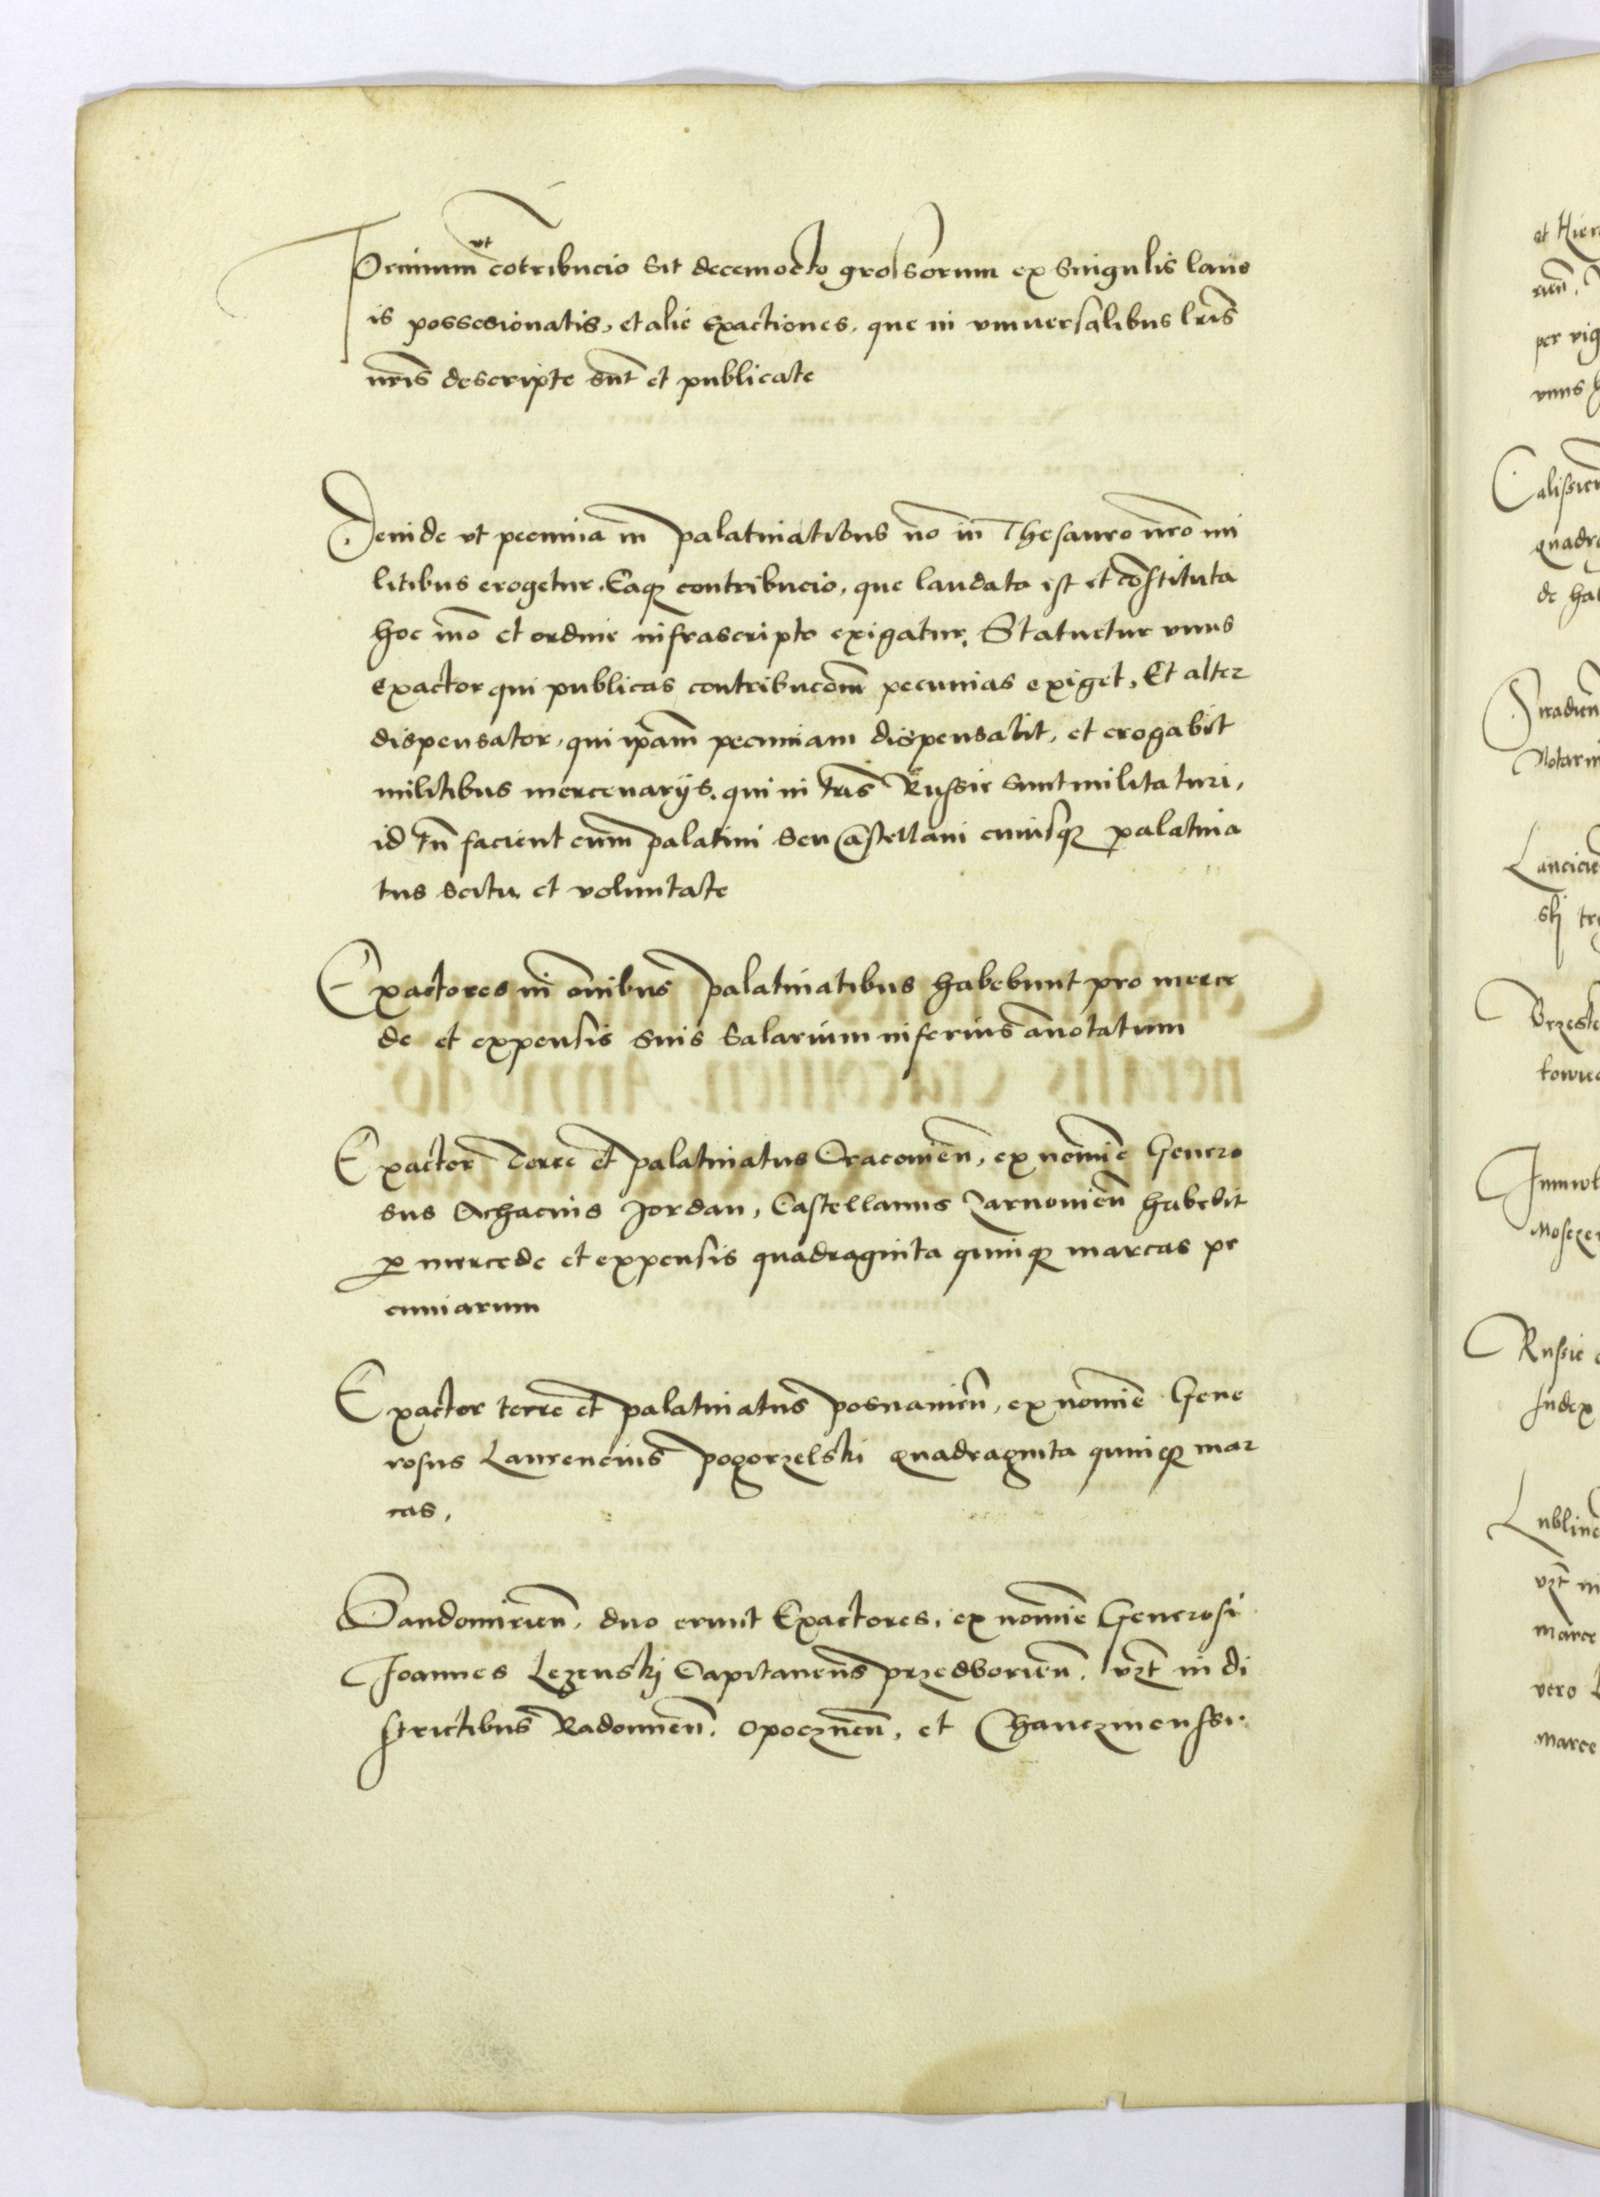 Primum ut cōtribucio sit decemocto grossorum ex singulis lane
is possesionatis, et alie exactiones, que in universalibus lr̃is
nr̃is descripte sūt et publicate
Deinde vt pecunia in palatinatibus nō in Thesauro nr̃o mi
litibus erogetur. Eaqꝫ contribucio, que laudata est et cōstituta
hoc mō et ordine infrascripto exigatur. Statuetur vnus
exactor qui publicas contribucōm pecunias exiget, Et alter
dispensator, qui ip̃am pecuniam dispensabit, et erogabit
militibus mercenarijs, qui in tr̃is Russie sunt militaturi,
id tn̄ facient cum palatini seu Castellani cuiusqꝫ palatina
tus scitu et voluntate
Exactores in om̄ibus palatinatibus habebunt pro merce
de et expensis suis salarium inferius ānotatum
Exactor Terre et palatinatus Cracouien̄, ex nomīe Genero
sus Achacius Jordan, Castellanus Zarnouien̄ habebit
ꝓ mercede et expensis quadraginta quinqꝫ marcas pe
cuniarum
Exactor terre et palatinatus posnanien̄, ex nomīe Gene
rosus Laurencius pogorzelski quadraginta quinqꝫ mar
cas,
Sandomirien̄, duo erunt Exactores, ex nomīe Generosi
Joannes Lezenskj Capitaneus przedborien̄, vz̄t in di
strictibus Radomien̄, opocznen̄, et Chanczinenssi.
et Hier
rien̄,
per vig
vnus
Calissien
quadra
de ha
Siradien̄
Notari
Lancicie
skj
Brzeste
kowie
Mosczen
Russie
Judex
Lubline
vz̄t in
marce
vero
marce